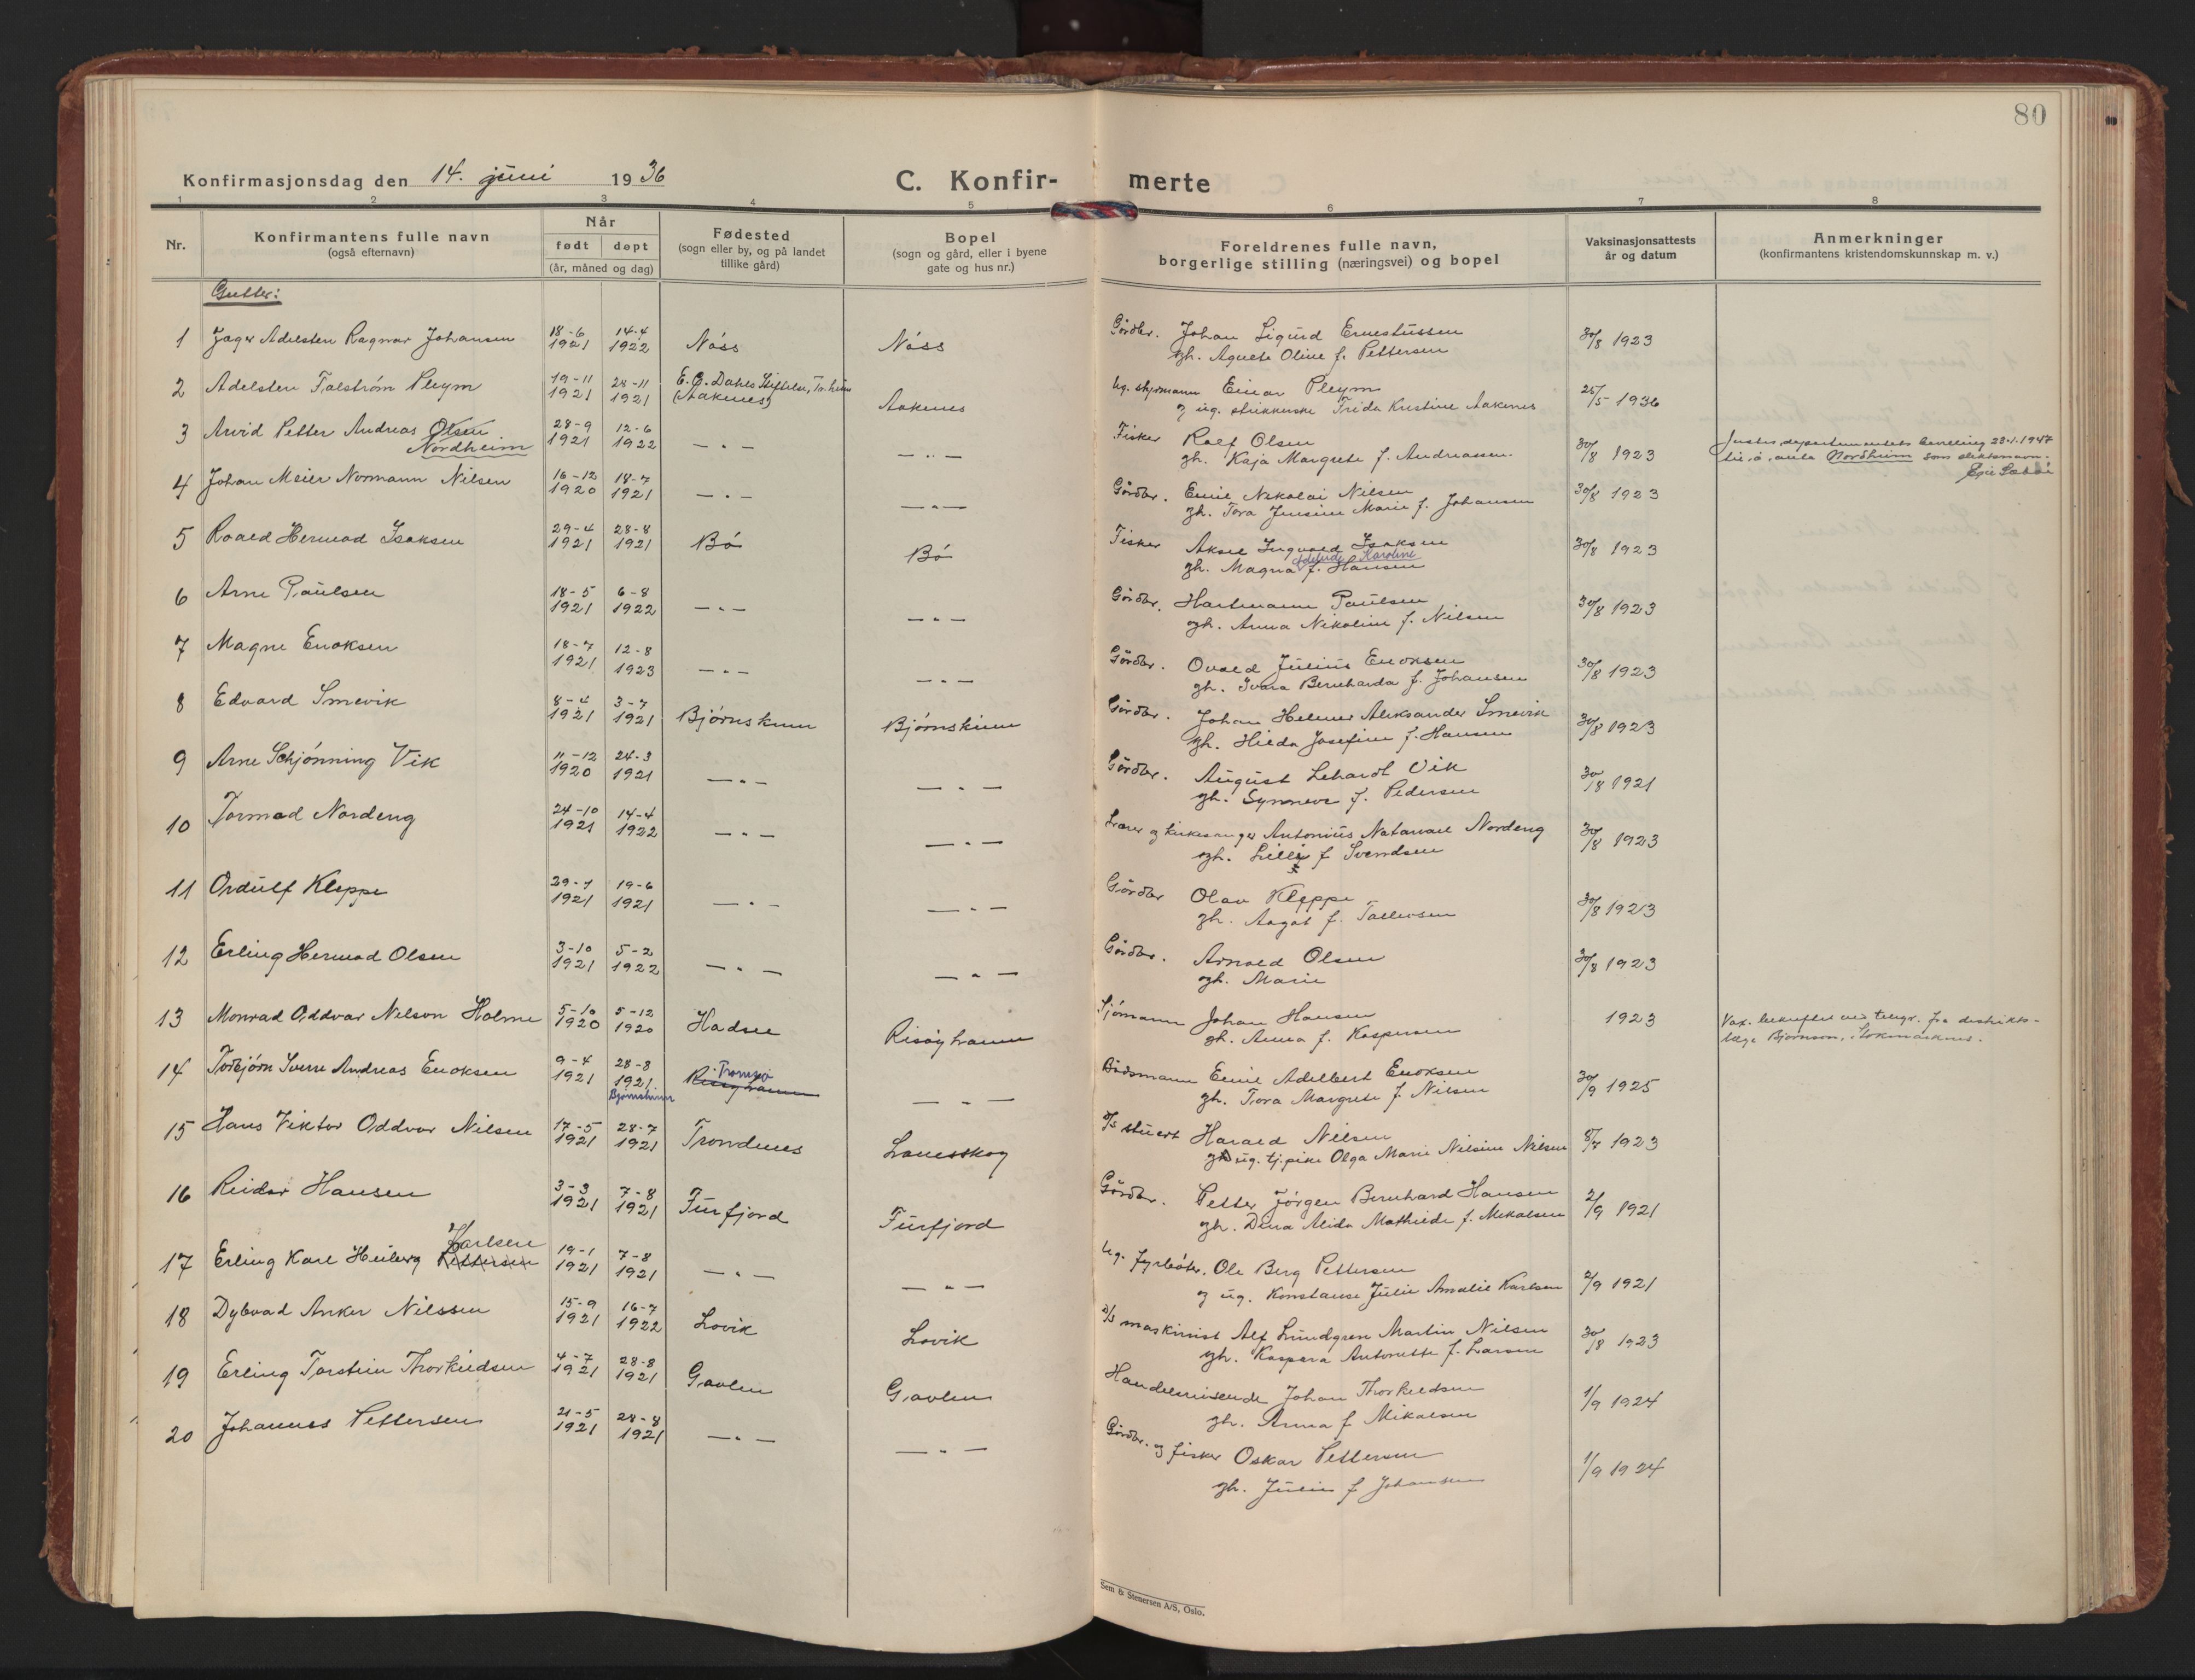 80
Konfirmasjonsdag den 14. juni 1936
C. Konfir- merte
1 2 3 4 5 6 7 8
Nr.
Konfirmantens fulle navn
(også efternavn)
Når
født døpt
(år, måned og dag)
Fødested
(sogn eller by, og på landet
tillike gård)
Bopel
(sogn og gård, eller i byene
gate og hus nr.)
Foreldrenes fulle navn,
borgerlige stilling (næringsvei) og bopel
Vaksinasjonsattests
år og datum
Anmerkninger
(konfirmantens kristendomskunnskap m. v.)
Gutter:
1 Jager Adelsten Ragnar Johansen 18-6 1921 14-4 1922 Nøss Nøss Gårdbr. Johan Sigurd Ernestussen 30/8 1923
gh. Agnete Oline f. Pettersen
2 Adelsten Falstrøm Pleym 19-11 1921 28-11 1921 E. C. Dahls Stiftelse, Tr.heim
(Aakenes) Aakenes Ug. styrmann Einar Pleym 25/5 1936
og ug. strikkerske Frida Kristine Aakenes
3 Arvid Petter Andreas Olsen 28-9 1921 12-6 1922 — " — — " — Fisker Rolf Olsen 30/8 1923
Nordheim
gh. Kaja Margrete f. Andreassen.
Justisdepartementets bevilling 23-1-1947
til å anta Nordheim som slektsnavn.
4 Johan Meier Normann Nilsen 16-12 1920 18-7 1921 — " — — " — Gårdbr. Emil Nikolai Nilsen 30/8 1923
gh. Tora Jensine Marie f. Johansen
5 Roald Hermod Isaksen 29-4 1921 28-8 1921 Bø Bø Fisker Aksel Ingvald Isaksen 30/8 1923
Adelude Karoline
gh. Magna f. Hansen
6 Arne Paulsen 18-5 1921 6-8 1922 — " — — " — Gårdbr. Hartmann Paulsen 30/8 1923
ogh. Anna Nikoline f. Nilsen
7 Magne Enoksen 18-7 1921 12-8 1923 — " — — " — Gårdbr. Ovald Julius Enoksen 30/8 1923
gh. Ivara Bernharda f. Johansen
8 Edvard Smevik 8-4 1921 3-7 1921 Bjørnskinn Bjørnskinn Gårdbr. Johan Helmer Aleksander Smevik 30/8 1923
gh. Hilda Josefine f. Hansen
9 Arne Schjønning Vik 11-12 1920 24-3 1921 — " — — " — Gårdbr. August Lehardt Vik 30/8 1921
gh. Synneve f. Pedersen
10 Tormod Nordeng 24-10 1921 14-4 1922 — " — — " — Lærer og kirkesanger Antonius Natanael Nordeng 30/8 1923
ogh. Lilly f Svendsen
11 Ordulf Kleppe 29-1 1921 19-6 1921 — " — — " — Gårdbr Olav Kleppe 30/8 1923
gh. Aagot f. Tollevsen
12 Erling Hermod Olsen 3-10 1921 5-2 1922 — " — — " — Gårdbr. Arnold Olsen 30/8 1923
ogh. Marie
13 Monrad Oddvar Nelson Holme 5-10 1920 5-12 1920 Hadsel Risøyhamn Sjømann Johan Hansen 1923
gh. Anna f. Kaspersen
Vax. bekreftet ved telegr. fra distrikts-
læge Bjørnson, Stokmarknes.
14 Torbjørn Sverre Andreas Enoksen 9-4 1921 28-8 1921 Bjørnskinn Risøyhamn Tromsø — " — Båtsmann Emil Adelbert Enoksen 30/9 1925
gh. Tora Margrete f. Nilsen
15 Hans Viktor Oddvar Nilsen 17-5 1921 28-7 1921 Trondenes Lanesskog D/s stuert Harald Nilsen 8/7 1923
ug. tj.pike Olga Marie Nilsine Nilsen
16 Reidar Hansen 3-3 1921 7-8 1921 Furfjord Furfjord Gårdbr. Petter Jørgen Bernhard Hansen 2/9 1921
gh. Dina Alida Mathilde f. Mikalsen
Karlsen
17 Erling Karl Heiberg Pettersen 19-1 1921 7-8 1921 — " — — " — Ug. fyrbøter. Ole Berg Pettersen 2/9 1921
og ug. Konstanse Julie Amalie Karlsen
18 Dybvad Anker Nilssen 15-9 1921 16-7 1922 Lovik Lovik D/s maskinist Alf Lundgren Martin Nilsen 30/8 1923
gh. Kaspara Antonette f. Larsen
19 Erling Torstein Thorkildsen 4-7 1921 28-8 1921 Gavlen Gavlen Handelsreisende Johan Thorkildsen 1/9 1924
gh. Anna f Mikalsen
20 Johannes Pettersen 21-5 1921 28-8 1921 — " — — " — Gårdbr. og fisker Oskar Pettersen 1/9 1924
gh. Julie f Johansen
Sem & Stenersen A/S, Oslo.